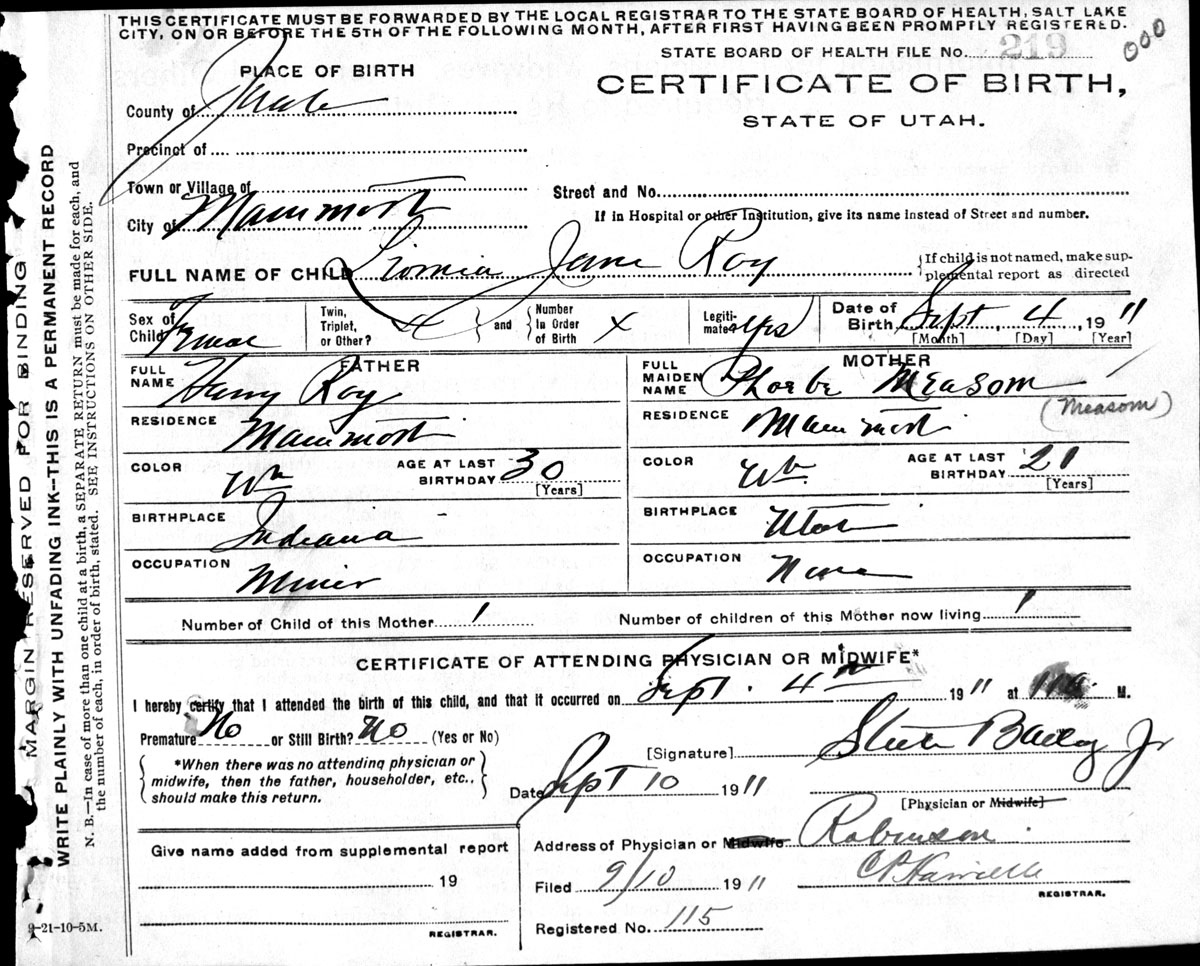 THIS CERTIFICATE MUST BE FORWARDED BY THE LOCAL REGISTRAR TO THE STATE BOARD OF HEALTH, SALT LAKE
CITY, ON OR BEFORE THE 5TH OF THE FOLLOWING MONTH, AFTER FIRST HAVING BEEN PROMPTLY REGISTERED.
000
STATE BOARD OF HEALTH FILE No. 219
PLACE OF BIRTH
CERTIFICATE OF BIRTH,
STATE OF UTAH.
County of Juab
Precinct of
Town or Village of
Street and No.
City of Mammoth
If in Hospital or other Institution, give its name instead of Street and number.
FULL NAME OF CHILD Jane Roy
{If child is not named, make sup-
plemental report as directed
Sex of Child Female
Twin, Triplet, or Other? X } and { Number In Order of Birth X
Legiti-mate yes
Date of Birth Sept, 4, 1911
[Month] [Day] [Year]
FATHER
FULL NAME Harry Roy
RESIDENCE Mammoth
COLOR Wh AGE AT LAST BIRTHDAY 30
[Years]
BIRTHPLACE Indiana
OCCUPATION Miner
MOTHER
FULL MAIDEN NAME Phoebe Measom
(Measom)
RESIDENCE Mammoth
COLOR Wh AGE AT LAST BIRTHDAY 21
[Years]
BIRTHPLACE Utah
OCCUPATION None
Number of Child of this Mother 1 Number of children of this Mother now living 1
CERTIFICATE OF ATTENDING PHYSICIAN OR MIDWIFE*
I hereby certify that I attended the birth of this child, and that it occurred on Sept. 4th 1911 at M.
Premature No or Still Birth? No (Yes or No)
{ *When there was no attending physician or
midwife, then the father, householder, etc.,
should make this return. }
[Signature] Steele Bailey Jr
Date Sept 10 1911
[Physician or Midwife]
Give name added from supplemental report
19
REGISTRAR.
Address of Physician or Midwife Robinson
Filed 9/10 1911
REGISTRAR.
Registered No. 115
9-21-10-5M.
MARGIN RESERVED FOR BINDING
WRITE PLAINLY WITH UNFADING INK--THIS IS A PERMANENT RECORD
N. B.—In case of more than one child at a birth, a SEPARATE RETURN must be made for each, and
the number of each, in order of birth, stated. SEE INSTRUCTIONS ON OTHER SIDE.